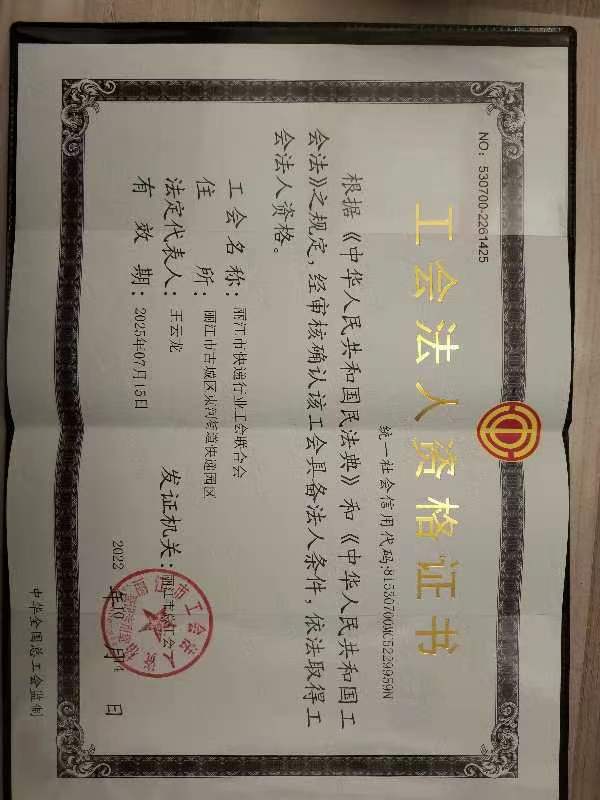 NO：530700-2261425
工会法人资格证书
统一社会信用代码:81530700MC5229959N
根据《中华人民共和国民法典》和《中华人民共和国工
会法》之规定，经审核确认该工会具备法人条件，依法取得工
会法人资格。
工会名称：丽江市快递行业工会联合会
住所：丽江市古城区束河街道快递园区
法定代表人：王云龙
有效期：2025年07月15日
发证机关：丽江市总工会
2022年10月 日
中华全国总工会监制